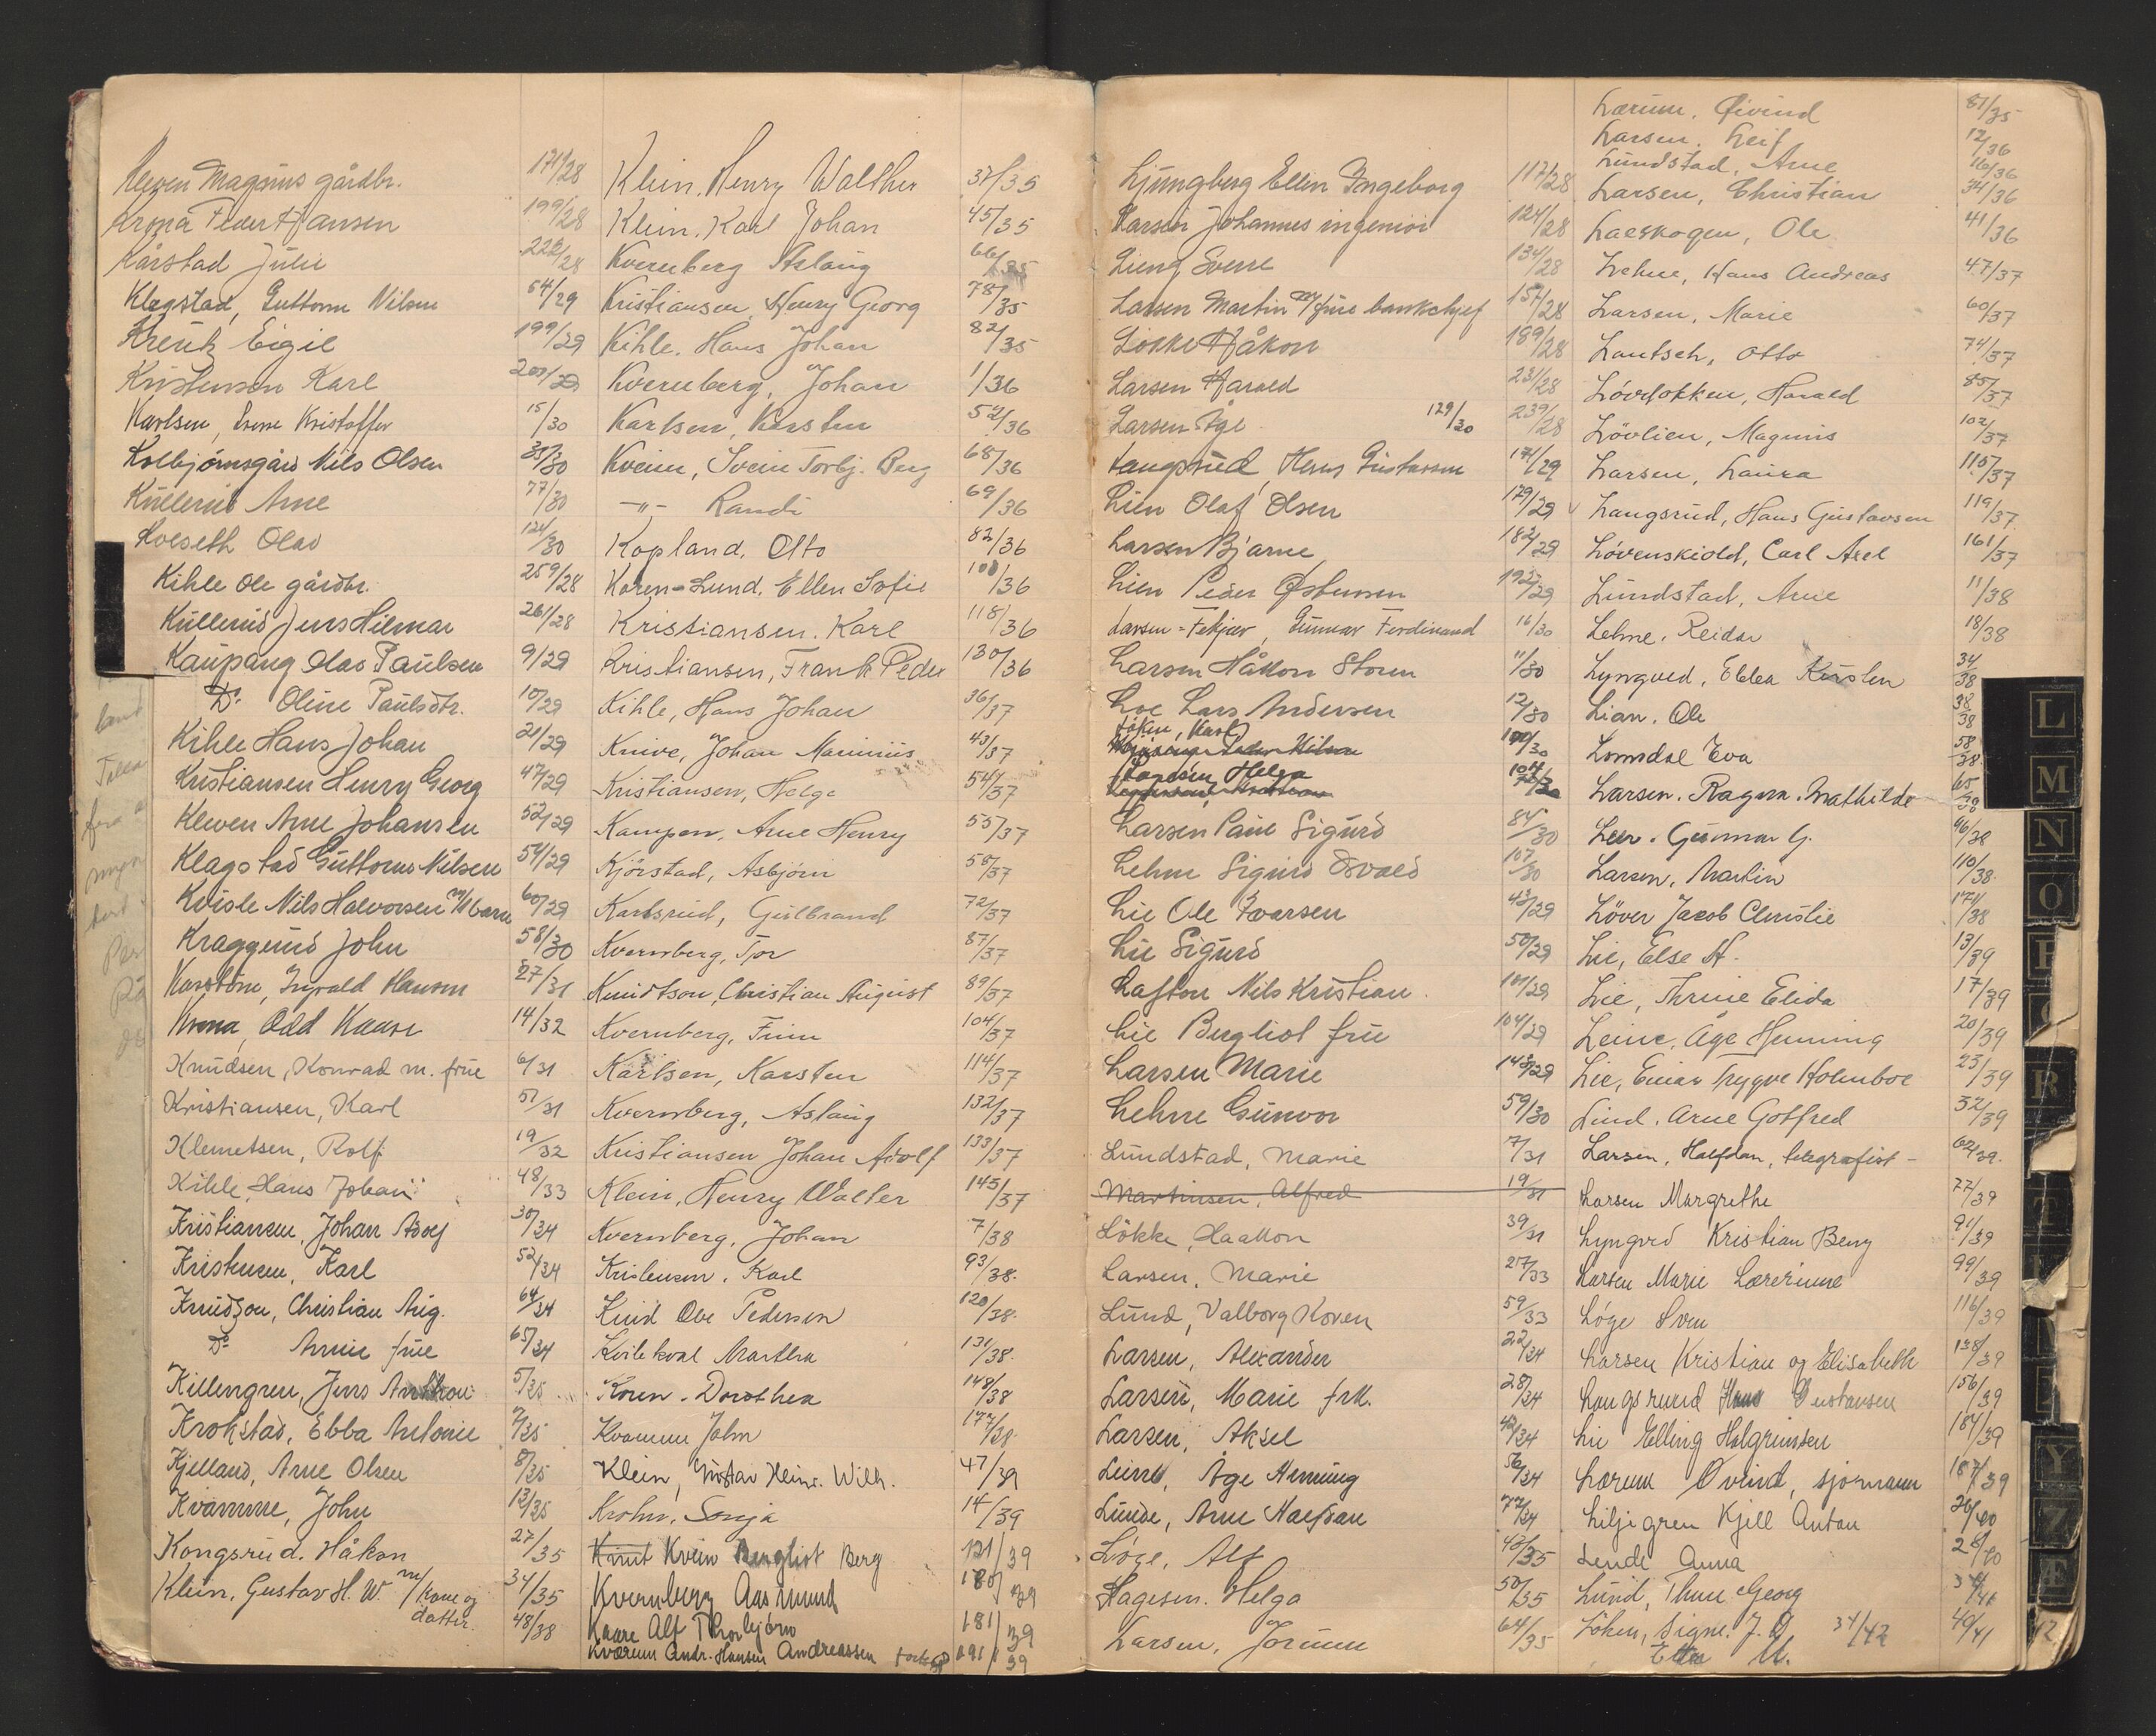 Kleven Magnus gårdbr. 171/28
Krona Peder Hansen 199/28
Kårstad Julie 222/28
Klagstad, Guttorm Nilsen 54/29
Kreuk Eigil 199/29
Kristensen Karl 200/29
Karlsen, Kristoffer 15/30
Kolbjørnsgård Nils Olsen 35/30
Kullerud Arne 77/30
Kolseth Olav 124/30
Kihle Ole gårdbr. 259/28
Kullerud Jens Hilmar 261/28
Kaupang Olav Paulsen 9/29
Do Oline Paulsdtr. 10/29
Kihle Hans Johan 21/29
Kristiansen Henry Georg 47/29
Kleven Arne Johansen 52/29
Klagstad Guttorm Nilsen 54/29
Kvisle Nils Halvorsen m/ barn 60/29
Kraggerud John 58/30
Karstbro, Ingvald Hansen 27/31
Krona, Odd Kaare 14/32
Knudsen, Konrad m. frue 6/31
Kristiansen, Karl 51/31
Klemetsen, Rolf 19/32
Kihle, Hans Johan 48/33
Kristiansen, Johan Adolf 30/34
Kristensen, Karl 52/34
Knudzon, Christian Aug. 64/34
Do Annie frue 65/34
Killengren, Jens Anthon 5/35
Krokstad, Ebba Antonie 7/35
Kjelland, Arne Olsen 8/35
Kvamme, John 13/35
Kongsrud. Håkon 27/35
Klein, Gustav H. W. m/ kone og datter. 34/35
48/38
Klein, Henry Walther 37/35
Klein, Karl Johan 45/35
Kvernberg Aslaug 66/35
Kristiansen, Henry Georg 78/35
Kihle, Hans Johan 82/35
Kvernberg, Johan 1/36
Karlsen, Karsten 52/36
Kveim, Svein Torbj. Berg 68/36
-"- Randi 69/36
Kopland, Otto 82/36
Koren-Lund, Ellen Sofie 108/36
Kristiansen. Karl 118/36
Kristiansen, Frank Peder 130/36
Kihle, Hans Johan 36/37
Knive, Johan Marinius 43/37
Kristiansen, Helge 54/37
Kampen, Arne Henry 55/37
Kjörstad, Asbjörn 58/37
Karlsrud, Gulbrand 72/37
Kvernberg, Tor 87/37
Knudtson, Christian August 89/37
Kvernberg, Finn 104/37
Karlsen, Karsten 114/37
Kvernberg, Aslaug 132/37
Kristiansen Johan Adolf 133/37
Klein, Henry Walter 145/37
Kvernberg, Johan 7/38
Kristensen, Karl 93/38.
Krud Ove Pedersen 120/38.
Kvilekval Martha 131/38.
Koren. Dorothea 148/38
Kvamme John 177/38.
Klein, Gustav Heinr. Wilh. 47/39
Krohn, Sonja 14/39
Knut Kvein Bergliot Berg 121/39
Kvernberg Aasmund 180/39
Kaare Alf Thorbjørn 181/39
Kværum Andr. Hansen Andreassen 191/39
Ljungberg Ellen Ingeborg 117/28
Larsen Johannes ingeniör 124/28
Lieng Sverre 134/28
Larsen Martin m/frue bankchjef 157/28
Løkke Håkon 189/28
Larsen Harald 231/28
Larsen Åge 129/30 239/28
Langsrud, Hans Gustavsen 171/29
Lien Olaf Olsen 179/29
Larsen Bjarne 182/29
Lien Peder Østensen 192/29
Larsen-Fekjær, Gunnar Ferdinand 16/30
Larsen Håkon Storm 11/30
Loe Lars Andersen 12/30
Løken, Karl 100/30
Hagesen, Helga 104/30
Larsen Paul Sigurd 84/30
Lehne Sigurd Osvald 107/30
Lie Ole Ivarsen 43/29
Lie Sigurd 50/29
Lafton Nils Kristian 101/29
Lie Bergliot frue 104/29
Larsen Marie 143/29
Lehne Gunvor 59/30
Lundstad, Marie 7/31
Martinsen, Alfred 19/31
Lökke, Haakon 39/31
Larsen, Marie 27/33
Lund, Valborg Koren 59/33
Larsen, Alexander 22/34
Larsen, Marie frk. 28/34
Larsen, Aksel 42/34
Leine, Åge Henning 56/34
Lunde, Arne Halfdan 77/34
Løge, Alf 43/35
Hagesen. Helga 50/35
Larsen, Jorunn 64/35
Lærum, Øivind 81/35
Larsen. Leif 12/36
Lundstad, Arne 16/36
Larsen, Christian 34/36
Laeskogen, Ole 41/36
Lehne, Hans Andreas 47/37
Larsen, Marie 60/37
Lautsch, Otto 74/37
Lövlokken, Harald 85/37
Lövlien, Magnus 102/37
Larsen, Laura 115/37
Langsrud, Hans Gustavsen 119/37
Lövenskiold, Carl Axel 161/37
Lundstad, Arne 11/38
Lehne, Reidar 18/38
Lyngved, Ebba Kirsten 34/38
Lian. Ole 38/38
Lomsdal Eva 58/38
Larsen. Ragna. Mathilde 65/38
Leer. Gunnar G. 96/38
Larsen, Martin 110/38.
Löver Jacob Christie 174/38
Lie, Else H. 13/39
Lie, Thrine Elida 17/39
Leine, Åge Henning 20/39
Lie, Einar Trygve Holmboe 23/39
Lind. Arne Gotfred 32/39
Larsen, Halfdan, telegrafist - 62/39.
Larsen Margrethe 77/39
Lyngved Kristian Berg 91/39
Larsen Marie Lærerinne 99/39
Løge Sven 116/39
Larsen Kristian og Elisabeth 138/39
Langsrund Hans Gustavsen 156/39
Lie Elling Halgrimsen 184/39
Lærum Øvind, sjømann 187/39
Liljegren Kjell Anton 26/40
Lende Anna 28/40
Lund, Thure Georg 34/41
Löken, Signe. J. D. 34/42 40/41
L
M
N
O
P
R
T
Y
Z
Æ